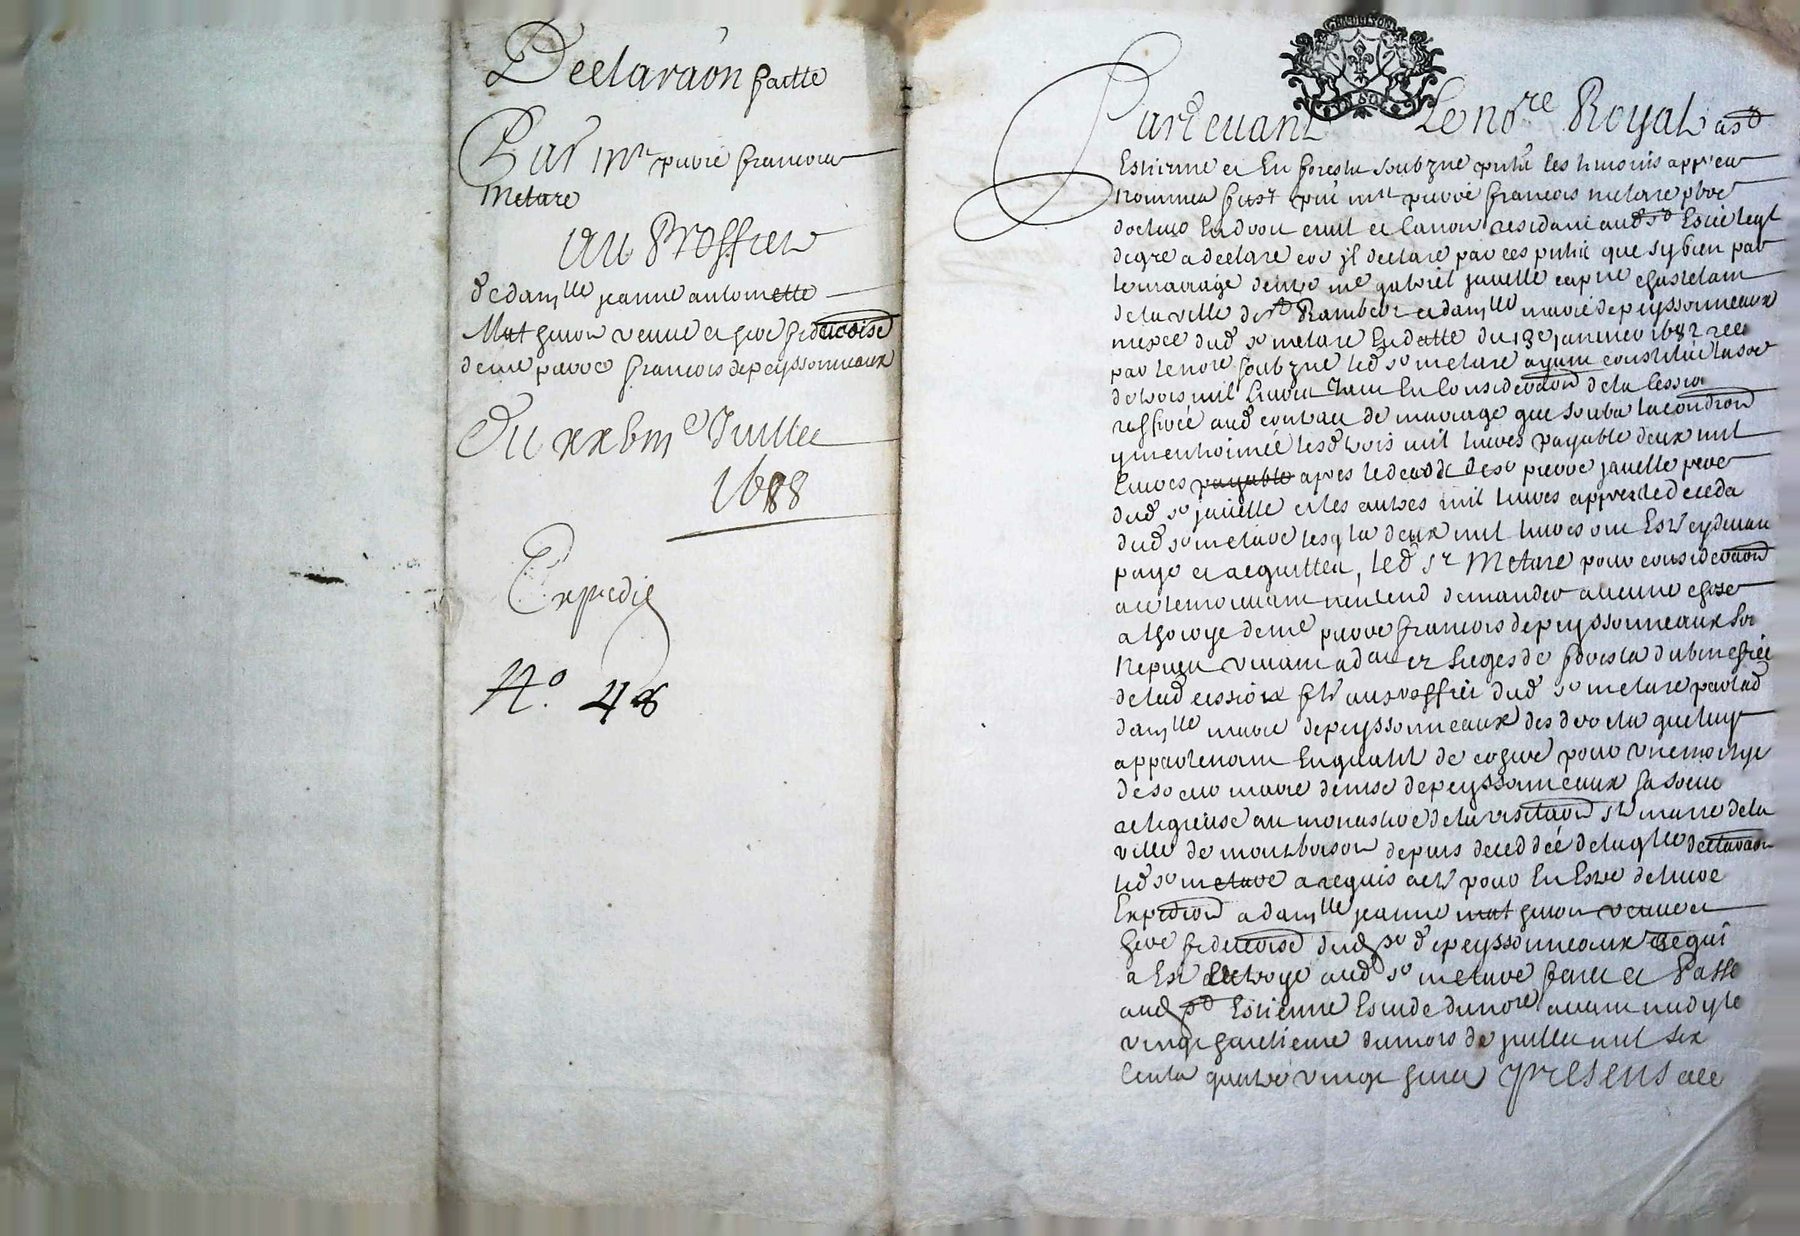 Declaraon faitte
Par mre pierre francois
Metare
Au Proffict
de damlle jeanne antoinette
Mathevon veufve et here fideicoise
de me pierre francois depeyssonneaux
Du xxbiiie Juillet
1688
Expedié
No. 48
GN DE LION
Pardevant Le nore Royal a st
Estienne en forestz soubzne prnts les tesmoins appres
nommes fust pnt mre pierre francois metare pbre
docteur en droit civil et canon residant aud st Estiene leql
de gre a declare et il declare par ces pntes que sy bien par
le mariage dentre me gabriel javelle capne chastelain
de la ville de st Rambert et damlle marie depeyssonneaux
niepce dud sr metare en datte du 13e janvier 1682 receu
par le nore soubzne led sr metare ayant constitué la soe
de trois mil livres en consideraon de la cession
reffirée aud contrac de mariage que soubz la condiond
y mentionnée lesd trois mil livres payable deux mil
livres payable apres le deceds de sr pierre javelle pere
dud sr javelle et les autres mil livres appres le deceds
dud sr metare lesqles deux mil livres ont esté cydevant
payé et acquittés, led sr Metare pour consideraon
a ce le mouvant nentend demander aucune chose
a lhoirye de me pierre francois depeyssonneaux son
nepveu vivant advat ez sieges de forestz du benefice
de lad cession fte au proffict dud sr metare par lad
damlle marie depeyssonneaux des droits que luy
appartenoient en qualité de cohere pour une moitye
de soeur marie denise depeyssonneaux sa soeur
religieuse au monastere de la visitaon ste marie de la
ville de montbrison depuis deceddée de laqlle declaraon
led sr metare a requis acte pour en estre delivré
Expedion a damlle jeanne mathevon veufve et
here fideicoise dud sr depeyssonneaux ce qui
a esté octroyé aud sr metare faict et Passé
aud st Estienne estude du nore avant midy le
vingt huictieme du mois de juillet mil six
cents quatre vingt huict presens me